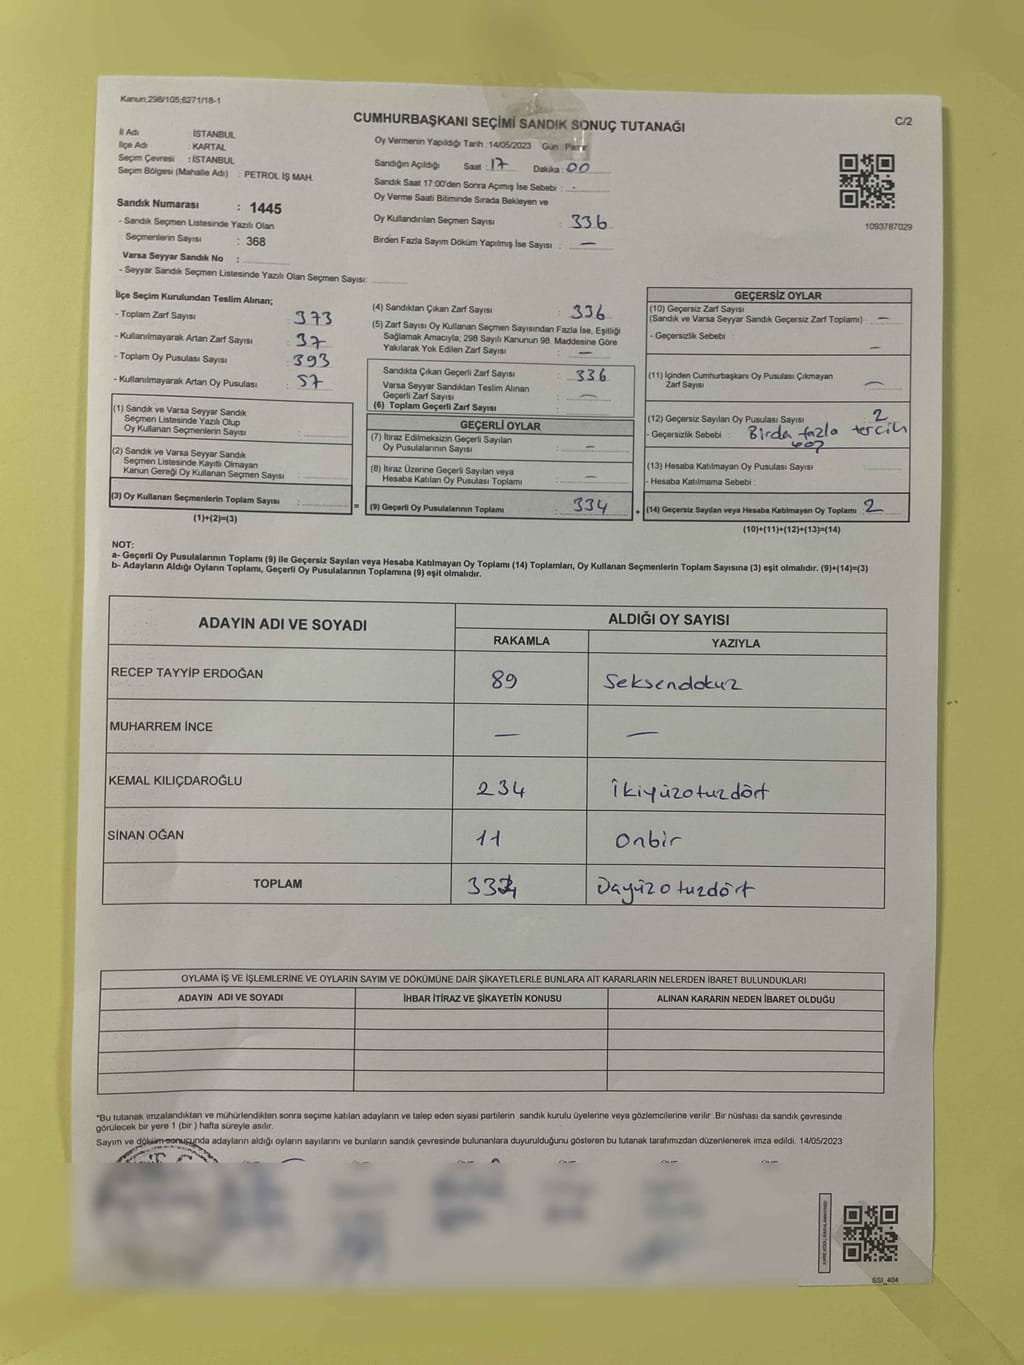 Kanun;298/105;6271/18-1
CUMHURBAŞKANI SEÇİMİ SANDIK SONUÇ TUTANAĞI
C/2
İl Adı : İSTANBUL
İlçe Adı : KARTAL
Seçim Çevresi : İSTANBUL
Seçim Bölgesi (Mahalle Adı) : PETROL İŞ MAH.
Sandık Numarası : 1445
- Sandık Seçmen Listesinde Yazılı Olan
Seçmenlerin Sayısı : 368
Varsa Seyyar Sandık No :
- Seyyar Sandık Seçmen Listesinde Yazılı Olan Seçmen Sayısı:
Oy Vermenin Yapıldığı Tarih :14/05/2023 Gün : Pazar
Sandığın Açıldığı Saat : 17 Dakika : 00
Sandık Saat 17:00'den Sonra Açımış İse Sebebi :
Oy Verme Saati Bitiminde Sırada Bekleyen ve
Oy Kullandırılan Seçmen Sayısı 336
Birden Fazla Sayım Döküm Yapılmış İse Sayısı : —
1093787029
İlçe Seçim Kurulundan Teslim Alınan;
- Toplam Zarf Sayısı : 373
- Kullanılmayarak Artan Zarf Sayısı : 37
- Toplam Oy Pusulası Sayısı : 393
- Kullanılmayarak Artan Oy Pusulası : 57
(1) Sandık ve Varsa Seyyar Sandık
Seçmen Listesinde Yazılı Olup
Oy Kullanan Seçmenlerin Sayısı :
(2) Sandık ve Varsa Seyyar Sandık
Seçmen Listesinde Kayıtlı Olmayan
Kanun Gereği Oy Kullanan Seçmen Sayısı :
(3) Oy Kullanan Seçmenlerin Toplam Sayısı :
(1)+(2)=(3)
(4) Sandıktan Çıkan Zarf Sayısı : 336
(5) Zarf Sayısı Oy Kullanan Seçmen Sayısından Fazla İse, Eşitliği
Sağlamak Amacıyla; 298 Sayılı Kanunun 98. Maddesine Göre
Yakılarak Yok Edilen Zarf Sayısı : —
Sandıkta Çıkan Geçerli Zarf Sayısı : 336
Varsa Seyyar Sandıktan Teslim Alınan
Geçerli Zarf Sayısı : —
(6) Toplam Geçerli Zarf Sayısı :
GEÇERLİ OYLAR
(7) İtiraz Edilmeksizin Geçerli Sayılan
Oy Pusulalarının Sayısı : —
(8) İtiraz Üzerine Geçerli Sayılan veya
Hesaba Katılan Oy Pusulası Toplamı : —
= (9) Geçerli Oy Pusulalarının Toplamı : 334
GEÇERSİZ OYLAR
(10) Geçersiz Zarf Sayısı
(Sandık ve Varsa Seyyar Sandık Geçersiz Zarf Toplamı) : —
- Geçersizlik Sebebi : —
(11) İçinden Cumhurbaşkanı Oy Pusulası Çıkmayan
Zarf Sayısı : —
(12) Geçersiz Sayılan Oy Pusulası Sayısı : 2
- Geçersizlik Sebebi : Birda fazla tercih
(13) Hesaba Katılmayan Oy Pusulası Sayısı :
- Hesaba Katılmama Sebebi :
+ (14) Geçersiz Sayılan veya Hesaba Katılmayan Oy Toplamı : 2
(10)+(11)+(12)+(13)=(14)
NOT:
a- Geçerli Oy Pusulalarının Toplamı (9) ile Geçersiz Sayılan veya Hesaba Katılmayan Oy Toplamı (14) Toplamları, Oy Kullanan Seçmenlerin Toplam Sayısına (3) eşit olmalıdır. (9)+(14)=(3)
b- Adayların Aldığı Oyların Toplamı, Geçerli Oy Pusulalarının Toplamına (9) eşit olmalıdır.
ADAYIN ADI VE SOYADI ALDIĞI OY SAYISI
RAKAMLA YAZIYLA
RECEP TAYYİP ERDOĞAN 89 Seksendokuz
MUHARREM İNCE — —
KEMAL KILIÇDAROĞLU 234 İkiyüzotuzdört
SİNAN OĞAN 11 Onbir
TOPLAM 334 üçyüzotuzdört
OYLAMA İŞ VE İŞLEMLERİNE VE OYLARIN SAYIM VE DÖKÜMÜNE DAİR ŞİKAYETLERLE BUNLARA AİT KARARLARIN NELERDEN İBARET BULUNDUKLARI
ADAYIN ADI VE SOYADI İHBAR İTİRAZ VE ŞİKAYETİN KONUSU ALINAN KARARIN NEDEN İBARET OLDUĞU
*Bu tutanak imzalandıktan ve mühürlendikten sonra seçime katılan adayların ve talep eden siyasi partilerin sandık kurulu üyelerine veya gözlemcilerine verilir .Bir nüshası da sandık çevresinde
görülecek bir yere 1 (bir ) hafta süreyle asılır.
Sayım ve döküm sonucunda adayların aldığı oyların sayılarını ve bunların sandık çevresinde bulunanlara duyurulduğunu gösteren bu tutanak tarafımızdan düzenlenerek imza edildi. 14/05/2023
SSI_404